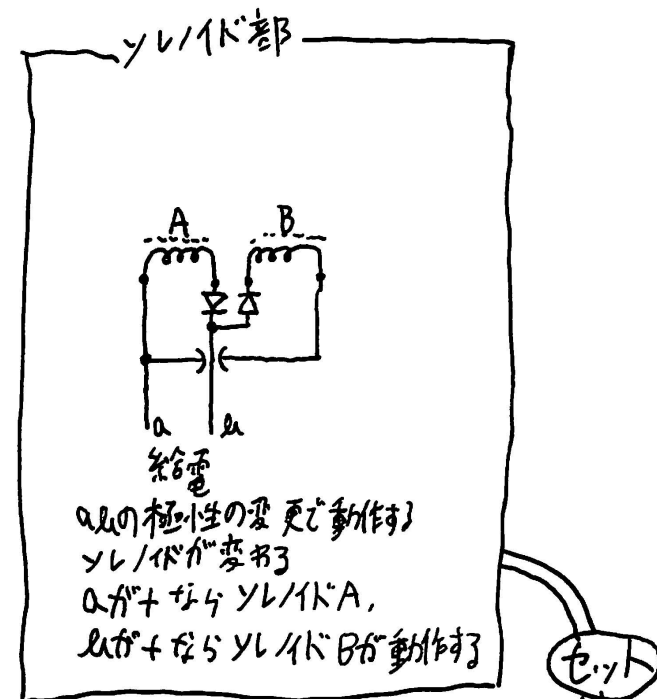 ソレノイド部
A
B
a b
給電
abの極性の変更で動作する
ソレノイドが変わる
aが+ならソレノイドA,
bが+ならソレノイドBが動作する
セット